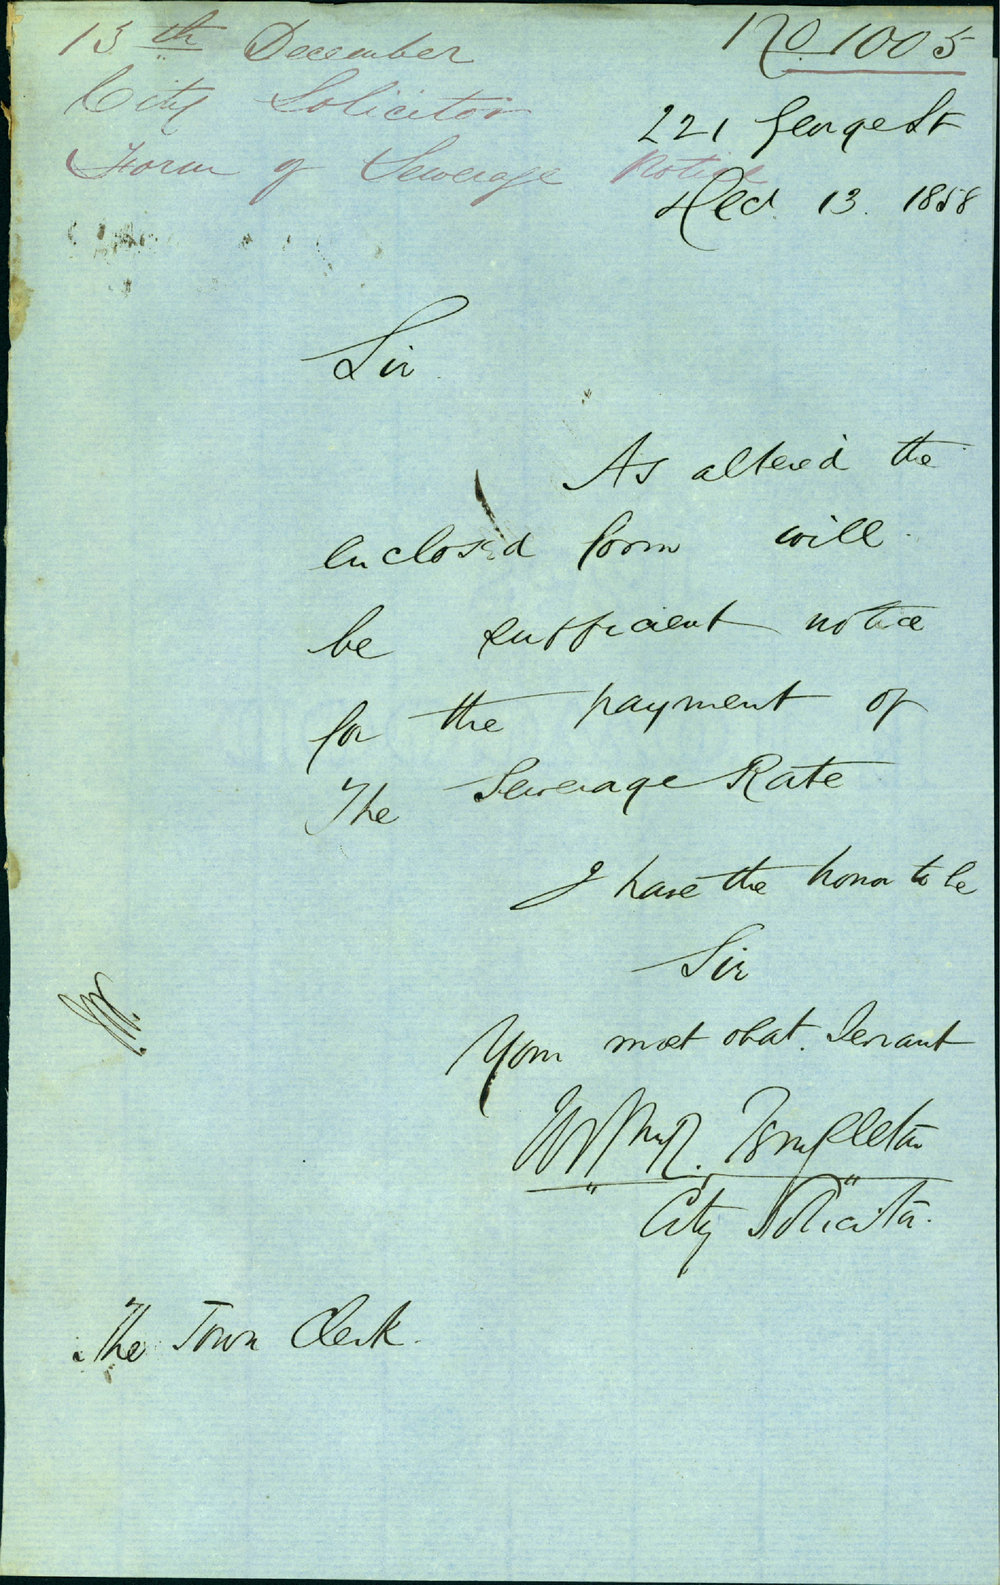 13th December
City Solicitor
Form of Sewerage Notice
No. 1005
221 George St
Decr. 13. 1858
Sir
As altered the
enclosed form will
be sufficient notice
for the payment of
the Sewerage Rate
I have the honor to be
Sir
Your most obdt. Servant
Templeton
City Solicitor.
The Town Clerk.